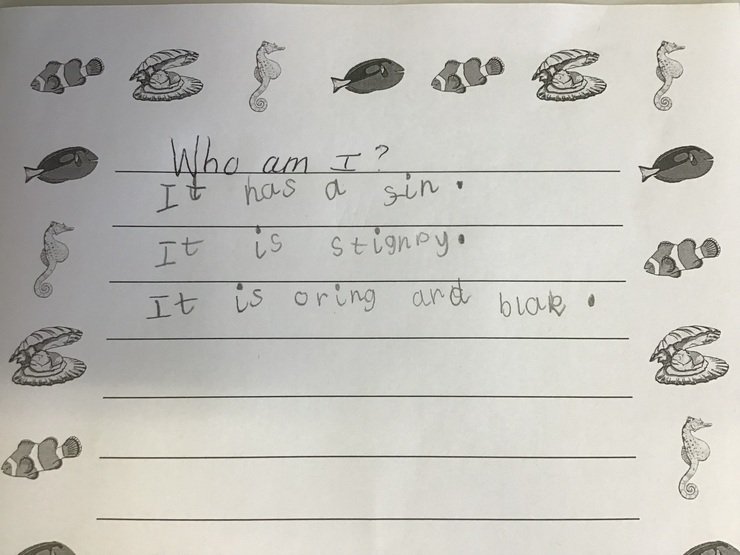 Who am I?
It has a sin.
It is stignpy.
It is oring and blak.